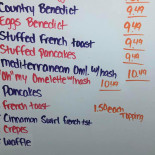 Country Benedict 9.49
Eggs Benedict 9.49
Stuffed French toast 9.49
Stuffed Pancakes 9.49
mediterranean Oml. w/hash 10.49
"Oh" my Omelette w/hash 10.49
Pancakes
French toast 1.50 each Topping
Cinnamon Swirl french tst
Crepes
Waffle